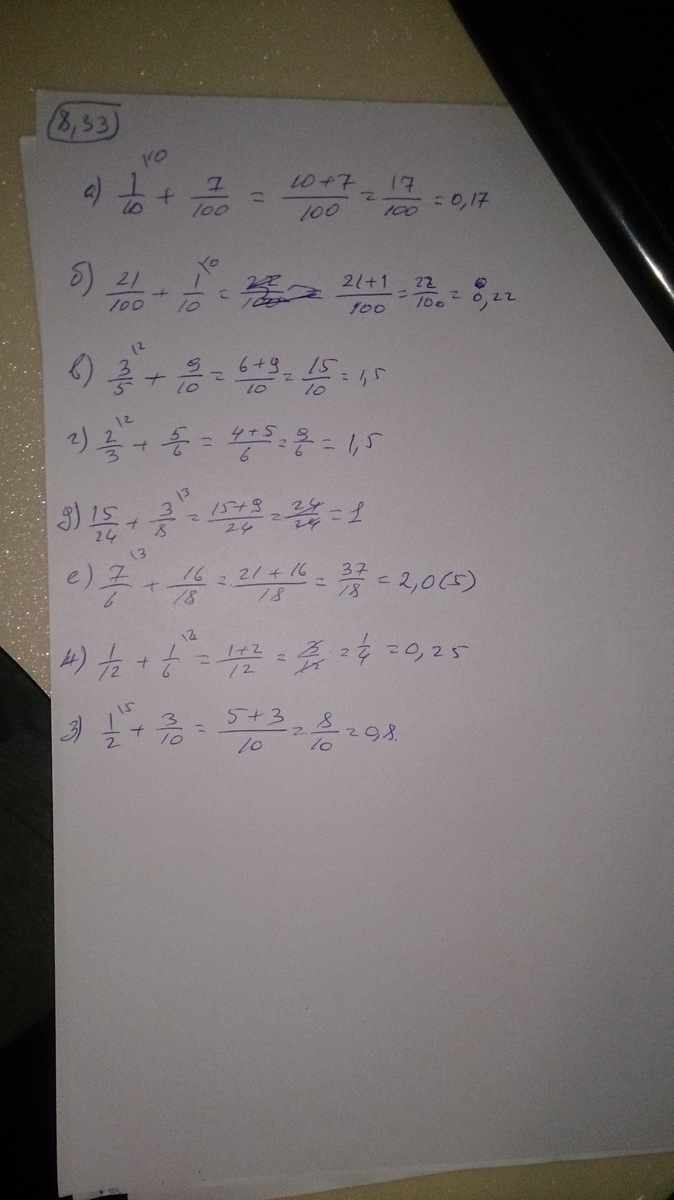 8,33
а) 1/10 \10 + 7/100 = (10+7)/100 = 17/100 = 0,17
б) 21/100 + 1/10 \10 = (21+1)/100 = 22/100 = 0,22
в) 3/5 \2 + 9/10 = (6+9)/10 = 15/10 = 1,5
г) 2/3 \2 + 5/6 = (4+5)/6 = 9/6 = 1,5
д) 15/24 + 3/8 \3 = (15+9)/24 = 24/24 = 1
е) 7/6 \3 + 16/18 = (21+16)/18 = 37/18 = 2,0(5)
ж) 1/12 + 1/6 \2 = (1+2)/12 = 3/12 = 1/4 = 0,25
з) 1/2 \5 + 3/10 = (5+3)/10 = 8/10 = 0,8.